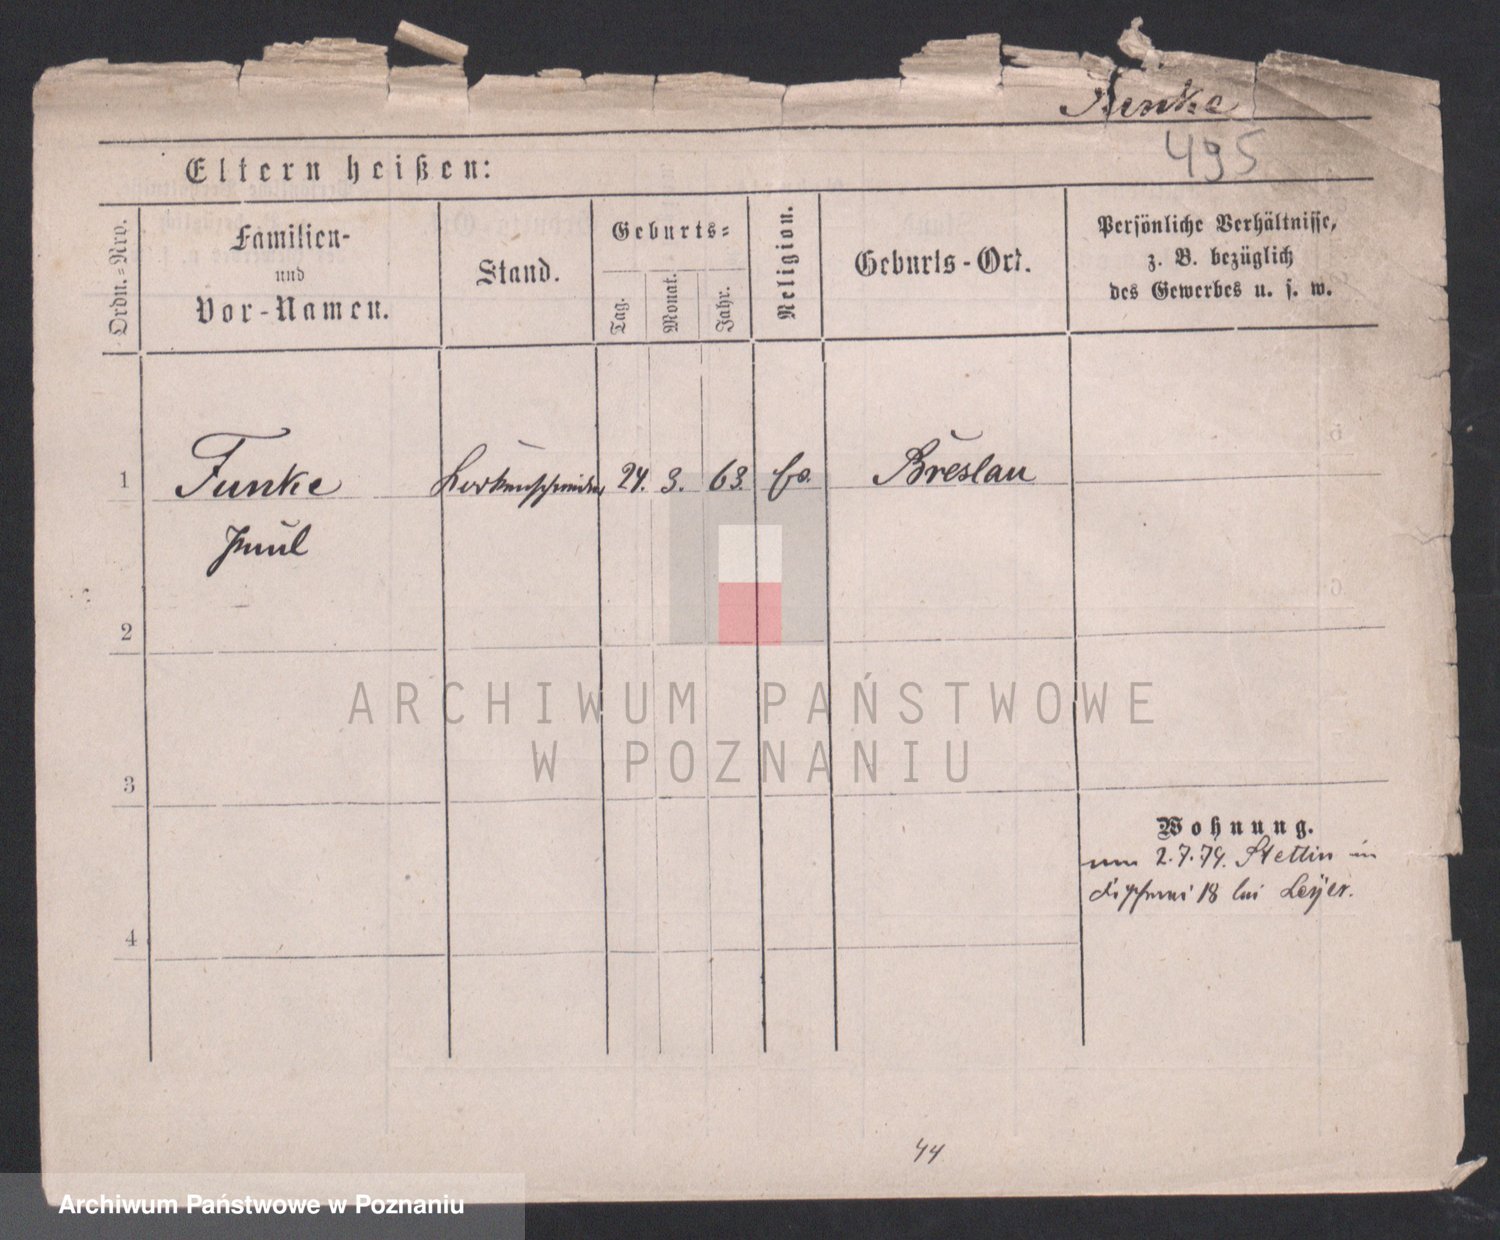 Funke
495
Eltern heißen:
Ordn.=Nro.
Familien-
und
Vor-Namen.
Stand.
Geburts=
Tag.
Monat.
Jahr.
Religion.
Geburts-Ort.
Persönliche Verhältnisse,
z. B. bezüglich
des Gewerbes u. s. w.
1 Funke 24. 3. 63. Breslau
Paul
2
ARCHIWUM PAŃSTWOWE
W POZNANIU
3
Wohnung.
2.7.79. Stettin
18 bei Leyer.
4
44
Archiwum Państwowe w Poznaniu